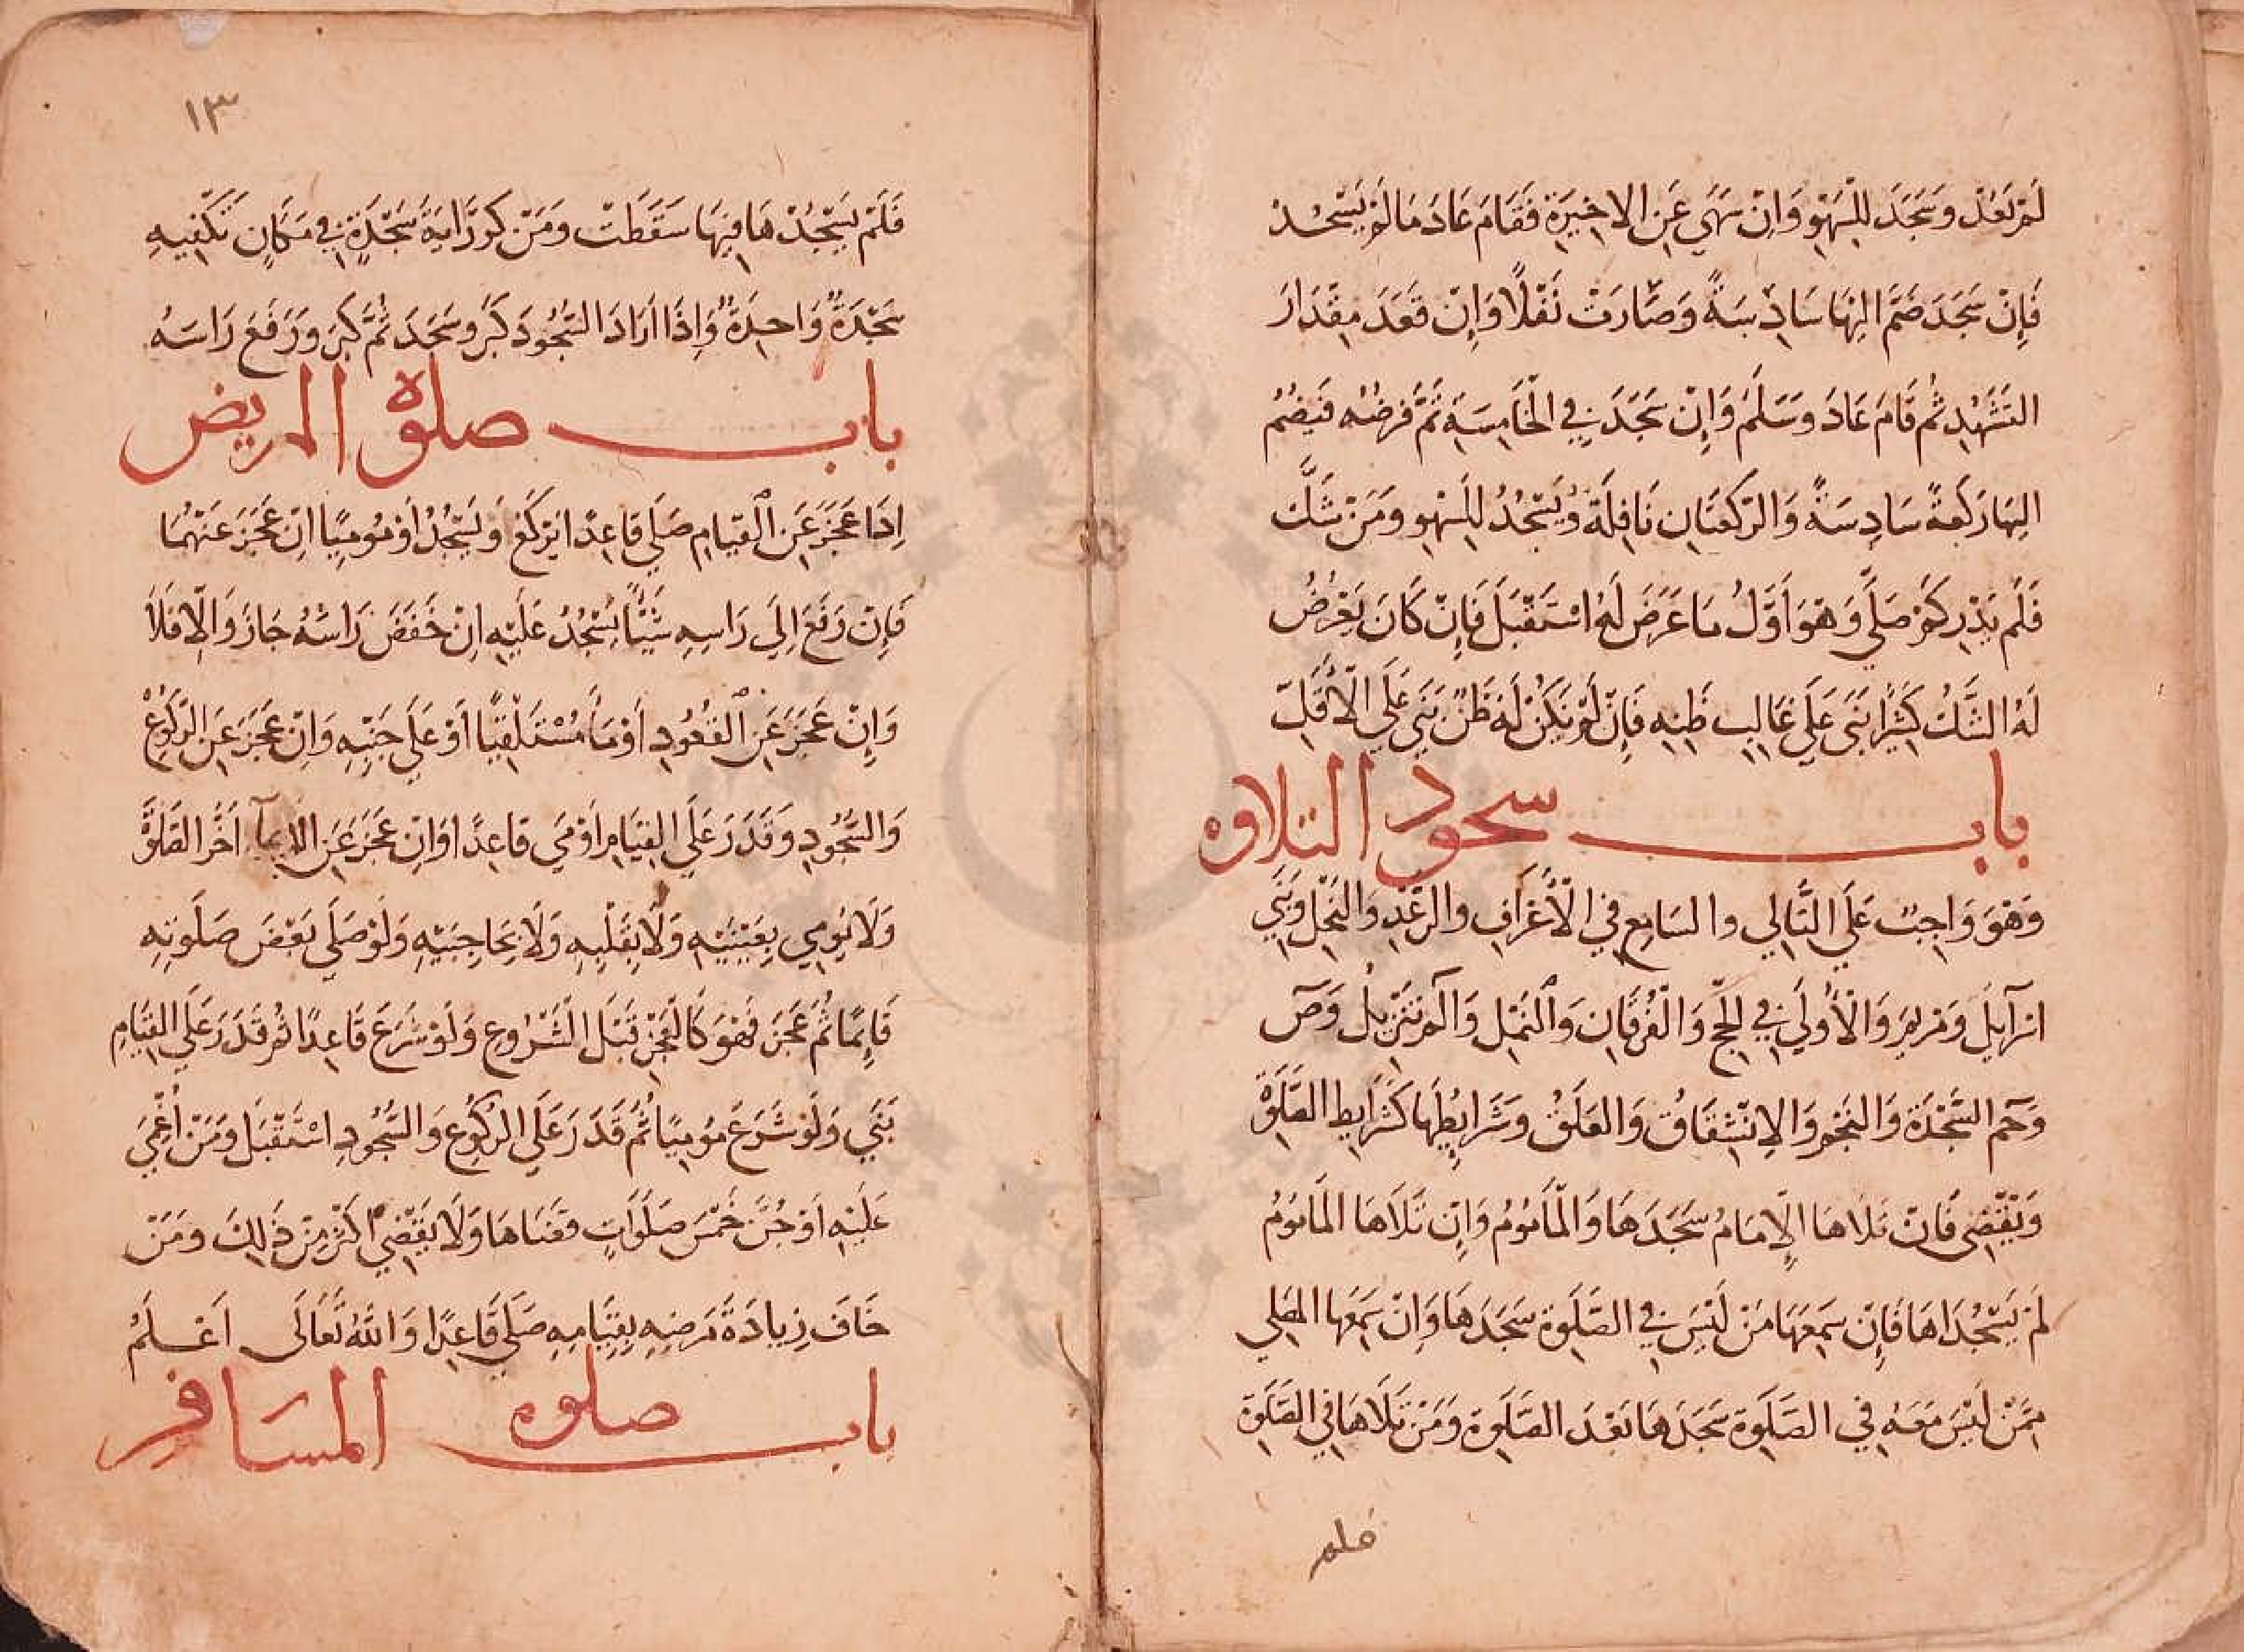 لَمْ يَعُدْ وَسَجَدَ لِلسَّهْوِ وَاِنْ سَهَى عَنِ الاخِيرَةِ فَقَامَ عَادَ مَا لَمْ يَسْجُدْ
فَإِنْ سَجَدَ ضَمَّ اِلَيْهَا سَادِسَةً وَصَارَتْ نَفْلًا وَإِنْ قَعَدَ مِقْدَارَ
التَّشَهُّدِ ثُمَّ قَامَ عَادَ وَسَلَّمَ وَإِنْ سَجَدَ فِي الْخَامِسَةِ تَمَّ فَرْضُه فَيَضُمُّ
اِلَيْهَا رَكْعَةً سَادِسَةً وَالرَّكْعَتَانِ نَافِلَةٌ وَيَسْجُدُ لِلسَّهْوِ وَمَنْ شَكَّ
فَلَمْ يَدْرِ كَمْ صَلَّى وَهْوَ أَوَّلُ مَا عَرَضَ لَهُ اسْتَقْبَلَ فَإِنْ كَانَ يَعْرِضُ
لَهُ الشَّكُّ كَثِيْرًا بَنَى عَلَى غَالِبِ ظَنِّهِ فَإِنْ لَمْ يَكُنْ لَهُ ظَنٌّ بَنَى عَلَى الْأَقَلِّ
باب سجود التلاوه
وَهْوَ وَاجِبٌ عَلَى التَّالِي والسَامِعِ فِي الْأَعْرَافِ والرَّعْدِ وَالنَّحْلِ وَبَنِي
اسْرَآئِيلَ وَمَرْيَمَ وَالْأُولَى فِي الْحَجِّ وَالْفُرْقَانِ وَالنَّمْلِ وَآلم تَنْزِيلُ وَصٓ
وَحٓم السَّجْدَةِ وَالنَّجْمِ وَالِانْشِقَاقِ وَالعَلَقْ وَشَرَايِطُهَا كَشَرَايِطِ الصَّلٰوةْ
وَتُقْضٰى فَإنْ تَلَاهَا الْإِمَامُ سَجَدَهَا وَالْمَأمُومُ وَإِنْ تَلَاهَا الْمَامُومُ
لَمْ يَسْجُدَاهَا فَإِنْ سَمِعَهَا مَنْ لَيْسَ فِي الصَّلَوةِ سَجَدَهَا وَاِنْ سَمِعَهَا المصَلِي
مِمَّنْ لَيْسَ مَعَهُ فِي الصَّلَوةِ سَجَدَهَا بَعْدَ الصَّلَوةِ وَمَنْ تَلَاهَا فِي الصَّلَوةِ
فلم
١٣
فَلَمْ يَسْجُدْهَا فِيهَا سَقَطَتْ وَمَنْ كَرَّرَ ايَةَ سَجْدَةٍ فِي مَكَانٍ تَكْفِيهِ
سَجْدَةٌ وَاحِدَةٌ وَإِذَا ارَادَ السُّجُودَ كَبَّرَ وسَجَدَ ثُمَّ كَبَّرَ وَرَفَعَ رَاسَهُ
باب صلوة المريض
اِذَا عَجَزَ عَنِ الْقِيَامِ صَلَى قَاعِدًا يَرْكَعُ وَيَسْجُدُ أَوْ مُومِيًا اِنْ عَجَزَ عَنْهُمَا
فَإِنْ رَفَعَ اِلَى رَاسِهِ شَيْئًا يَسْجُدُ عَلَيْهِ اِنْ خَفَضَ رَاسَهُ جَازَ وَالَّا فَلَا
وَإِنْ عَجَزَ عَنِ الْقُعُودِ أَوْمَأَ مُسْتَلْقِيًا أَوْ عَلَى جَنْبِهِ وَاِنْ عَجَزَ عَنِ الرُّكُوعْ
وَالسُّجُودِ وَقَدَرَ عَلَى القِيَامِ اَوْمَى قاعِدًا وَاِنْ عَجَزَ عَنِ الِايمآءِ أخَّرَ الصَّلَوةَ
وَلَا يُومِي بِعَيْنَيْهِ وَلَا بِقَلْبِهِ وَلَا بِحَاجِبَيْهِ وَلَوْ صَلَى بَعْضَ صَلَوتِهِ
قَايِمًا ثُمَّ عَجَزَ فَهْوَ كَالْعَجْزِ قَبْلَ الشُّرُوعِ وَلَوْ شَرَعَ قَاعِدًا ثُمَّ قَدَرَ عَلَى القِيَامِ
بَنَى وَلَوْ شَرَعَ مُومِيًا ثُمَّ قَدَرَ عَلَى الرُّكُوعِ وَالسُّجُودِ اسْتَقْبَلَ وَمَنْ أُغْمِيَ
عَلَيْهِ اَوْ جُنَّ خَمْسَ صَلَوَاتٍ قَضَاهَا وَلَا يَقْضِي اكْثَرَ مِنْ ذَلِكَ وَمَنْ
خَافَ زِيادَةَ مَرَضِهِ بِقِيَامِهِ صَلَى قَاعِدًا وَاللّٰهُ تَعَالَى اَعْلَمُ
باب صلوه المسَافِر